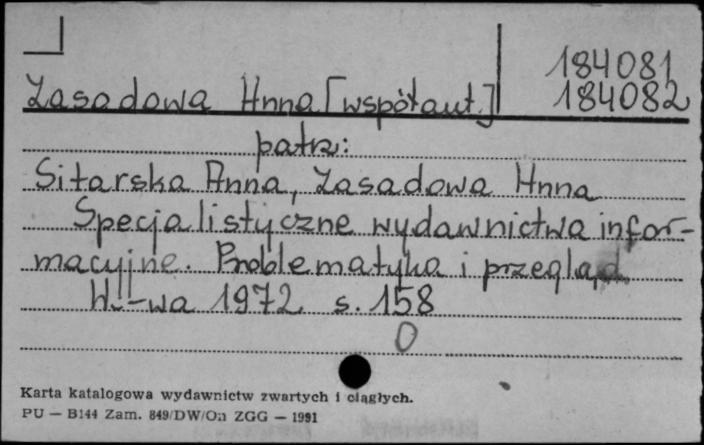 184081
Zasadowa Anna [współaut.] 184082
patrz:
Sitarska Anna, Zasadowa Anna
Specjalistyczne wydawnictwa infor-
macyjne. Problematyka i przegląd
W-wa 1972 s. 158
0
Karta katalogowa wydawnictw zwartych i ciągłych.
PU — B144 Zam. 849/DW/On ZGG — 1991